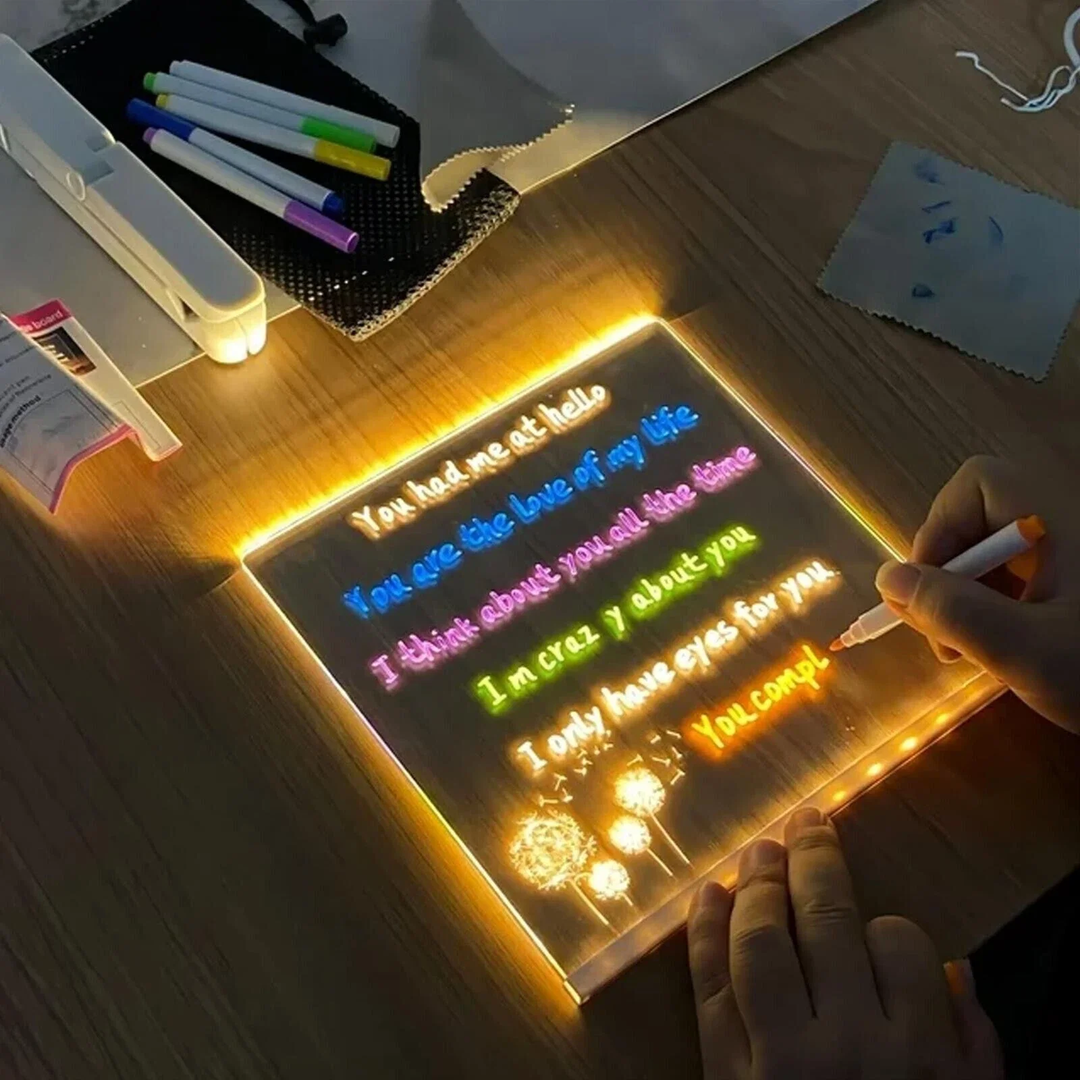 You had me at hello
You are the love of my life
I think about you all the time
I m craz y about you
I only have eyes for you.
You compl
board
method